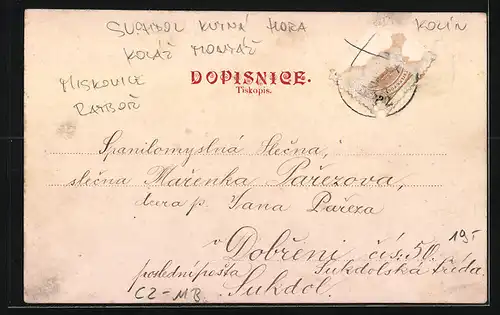 SUCHDOL KUTNÁ HORA
KOLÍN
KOLÁŽ MONTÁŽ
MISKOVICE
RATBOŘ
DOPISNICE.
Tiskopis.
Spanilomyslná Slečna,
slečna Mařenka Pařezova,
dcera p. Jana Pařeza
v Dobřeni čís. 50.
19,-
Sukdolská třída.
poslední pošta
Sukdol.
CZ-MB